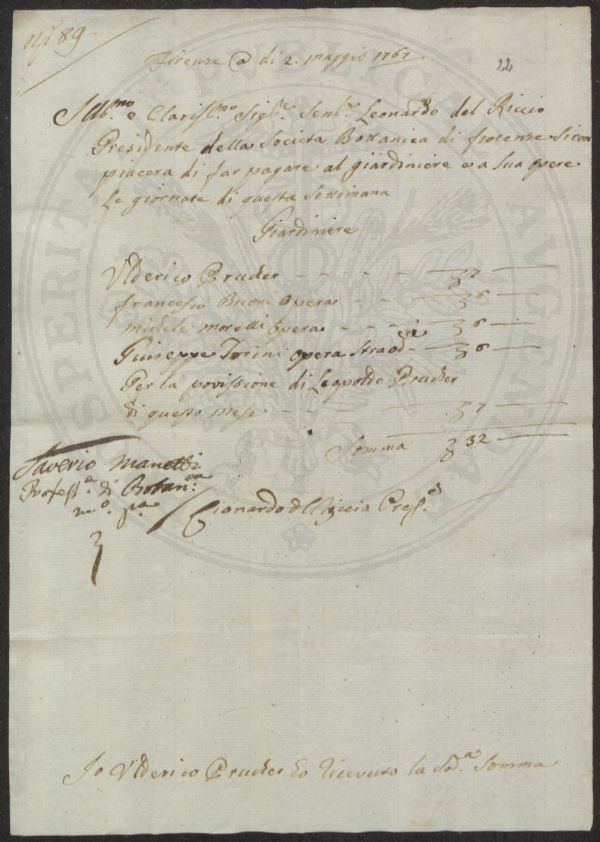 89
22
Firenze @ di 2. maggio 1767
Ill.mo e Clariss.mo Sig.re Sen.re Leonardo del Riccio
Presidente della Societa Bottanica di fiorenze Si com
piacera di far pagare al giardiniere e a sua opere
Le giornate di questa Settimana
Giardiniere
Ulderico Prucker - - - - 7
francesco Buoni Opera - - - 6
michele morelli opera - - - 6
Giuiseppe Torini opera Straod.rie - 6
Per la povissione di Leopoldo Prucker
di questo mese - - - - 7
Somma 32
Saverio Manetti
Profess.e di Botan.ca
m.o p.a
Lionardo d Riccio Pres.e
Io Ulderico Prucker ho ricevuto la Sod.a Somma
PROSPERITA PUBLICA AUGUMENTA